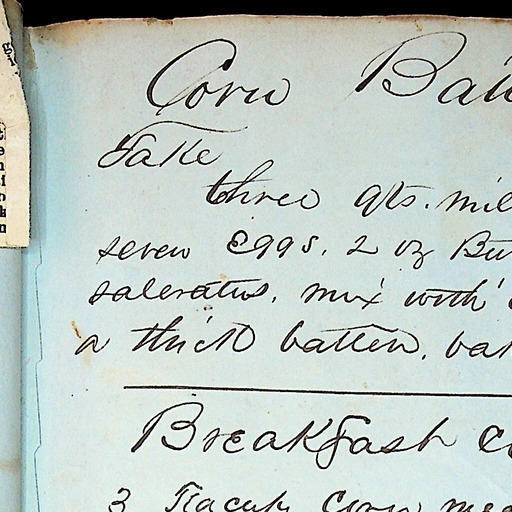 Corn Ba
Take
three qts. mil
seven Eggs. 2 oz Bu
saleratus. mix with
a thick batter. ba
Breakfast C
3 Teacup Corn mea